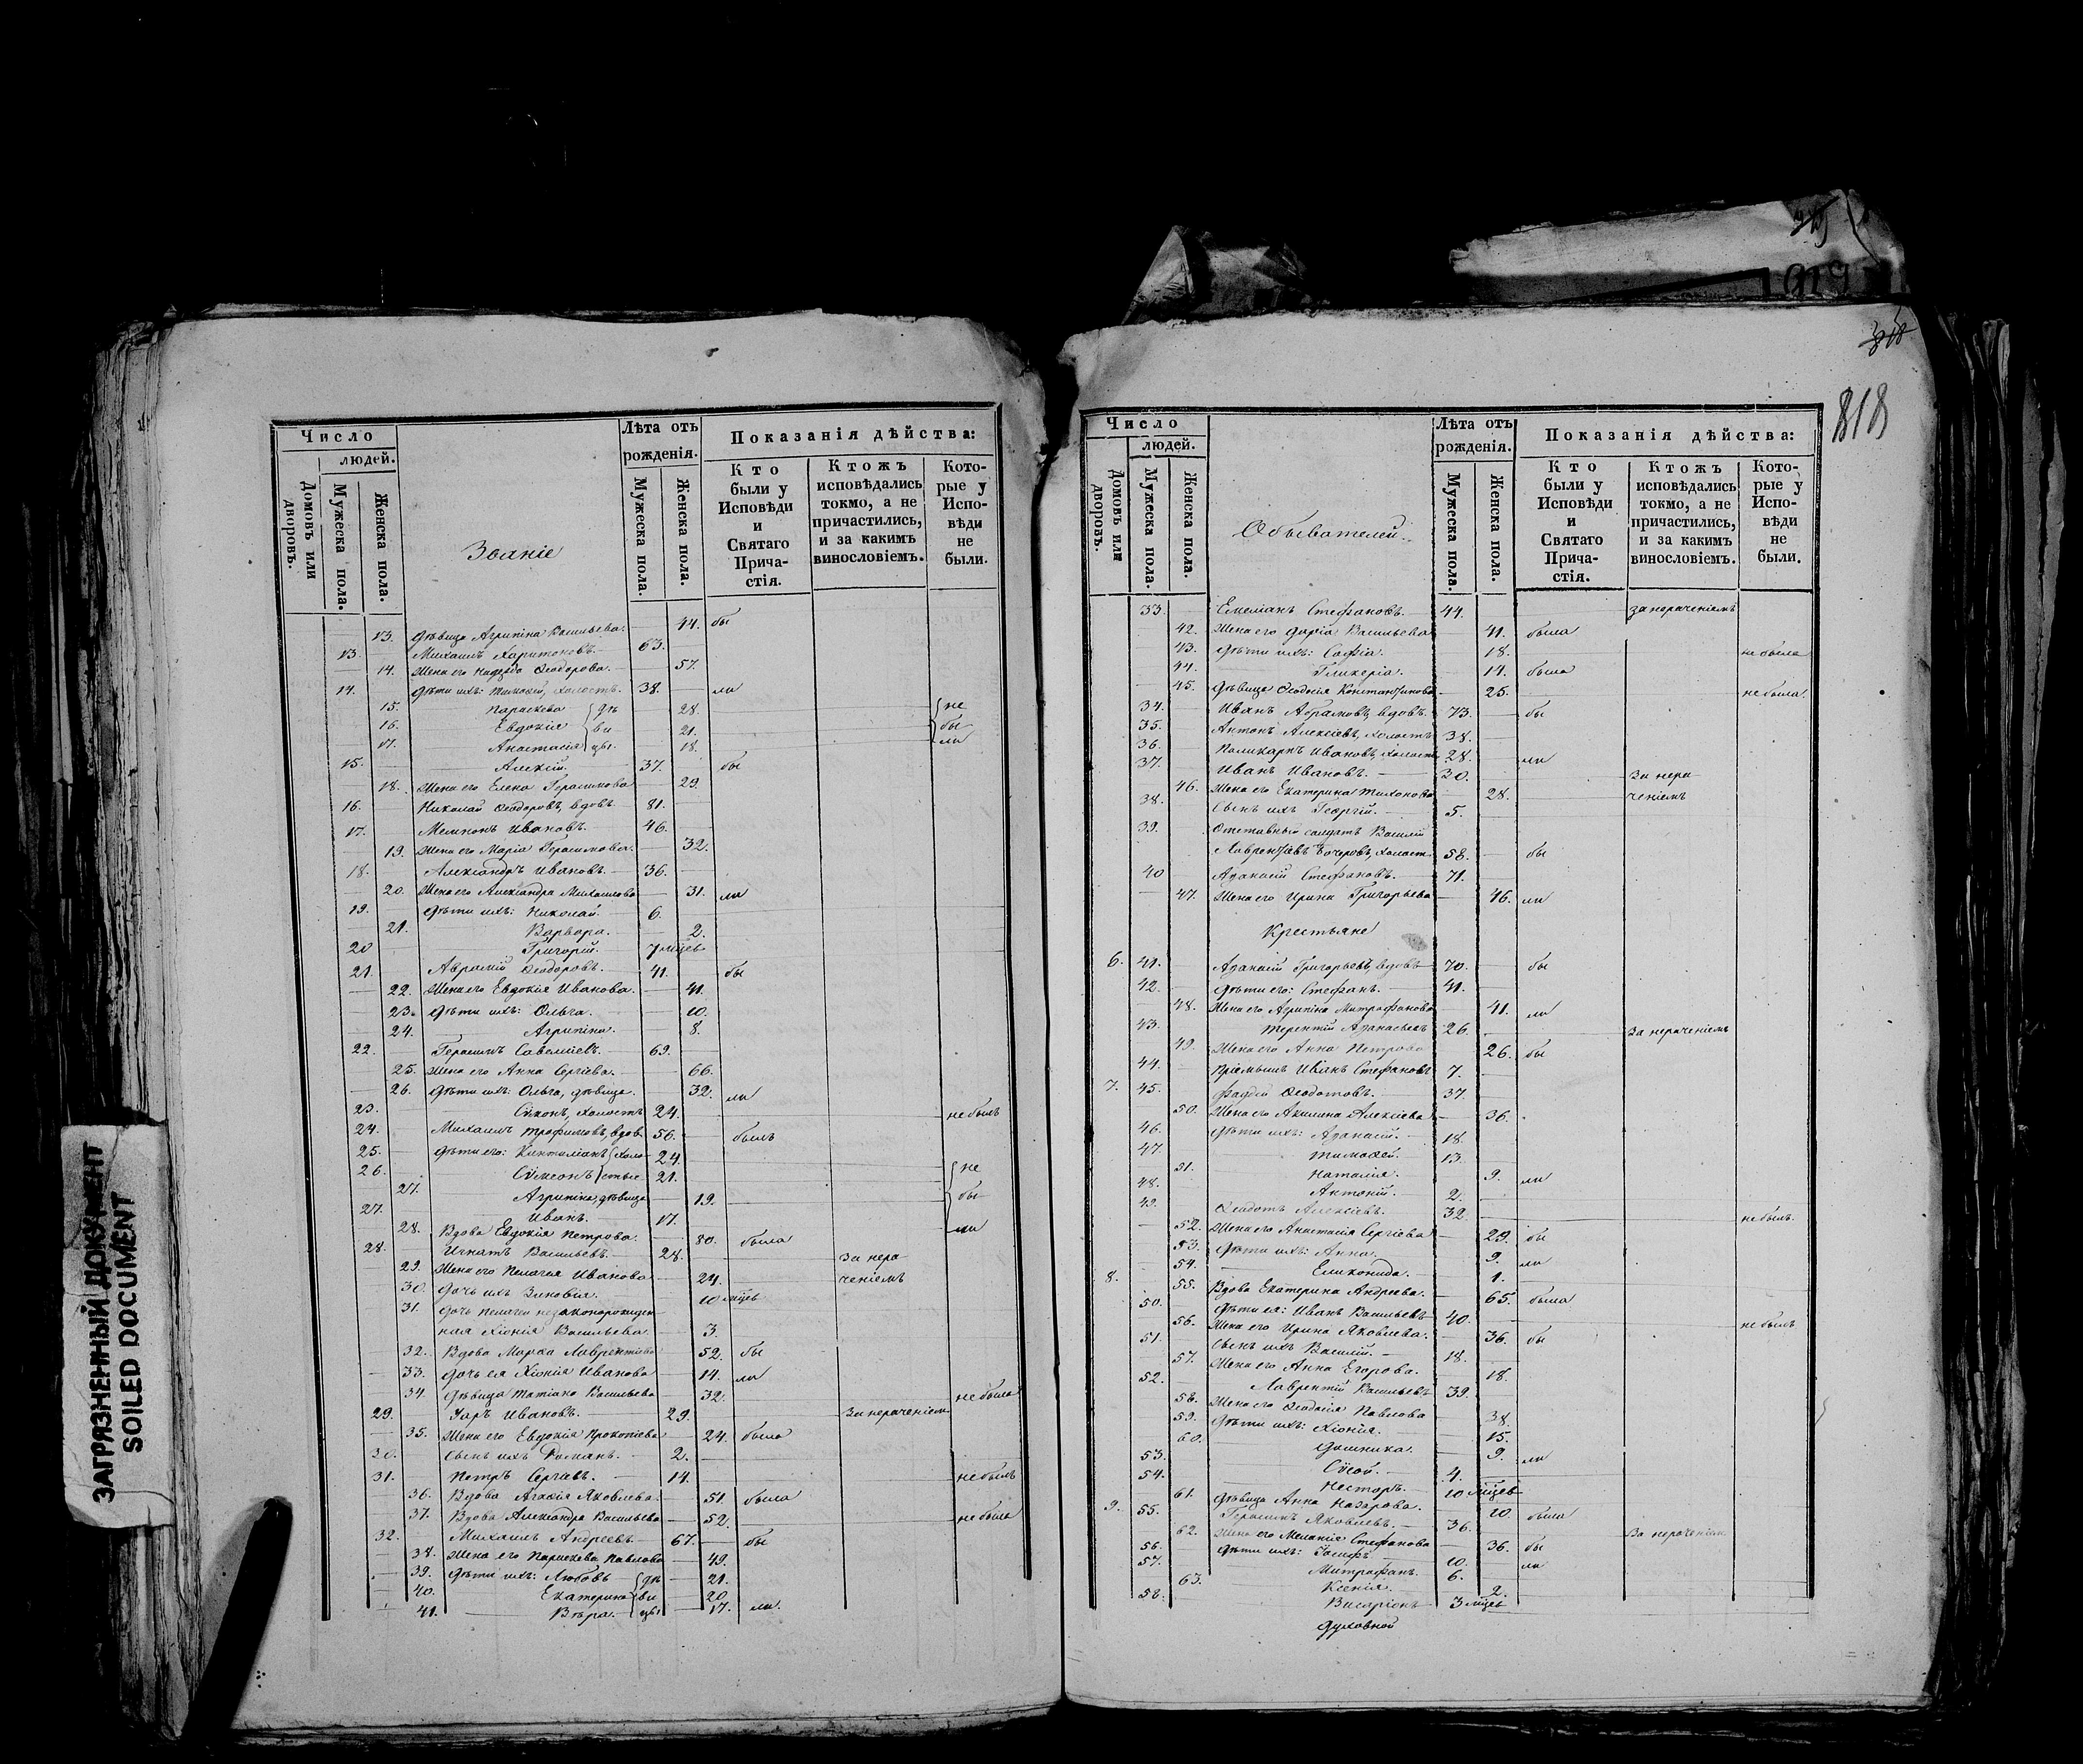 ЗАГРЯЗНЕННЫЙ ДОКУМЕНТ
SOILED DOCUMENT
Число
людей.
Домовъ или дворовъ.
Мужеска пола.
Женска пола.
Званіе
Лѣта отъ рожденія.
Мужеска пола.
Женска пола.
Показанія дѣйства:
Кто были у Исповѣди и Святаго Прича-стія.
Ктожъ исповѣдались токмо, а не причастились, и за какимъ винословіемъ.
Кото-рые у Испо-вѣди не были.
13. Дѣвица Агрипина Васильева. 44. бы
13. Михаилъ Харитоновъ. 63.
14. Жена его Надежда Ѳеодорова. 57.
14. Дѣти ихъ: Тимоѳей, холостъ. 38. ли
15. Параскева дѣ 28. не
16. Евдокія ви 21. бы
17. Анастасія цы. 18. ли
15. Алексій. 37. бы
18. Жена его Елена Герасимова 29.
16. Николай Ѳеодоровъ, вдовъ. 81.
17. Мемнонъ Ивановъ. 46.
19. Жена его Марія Герасимова. 32.
18. Александръ Ивановъ. 36.
20. Жена его Александра Михаилова 31. ли
19. Дѣти ихъ: Николай. 6.
21. Варвара. 2.
20 Григорій. 7 мцев
21. Аврамій Ѳеодоровъ. 41. бы
22. Жена его Евдокія Иванова. 41.
23. Дѣти ихъ: Ольга. 10.
24. Агрипина. 8.
22. Герасимъ Савеліевъ. 69.
25. Жена его Анна Сергіева. 66.
26. Дѣти ихъ: Ольга, дѣвица. 32. ли
23. Сѵмонъ, холостъ 24. не былъ
24. Михаилъ Трофимовъ, вдов. 56. былъ
25. Дѣти его: Кинтиліанъ холо- 24.
26. Сѵмеонъ стые 21. не
27. Агрипина, дѣвица 19. бы
27. Иванъ. 17.
28. Вдова Евдокія Петрова. 80. была ли
28. Игнатъ Васильевъ. 28. За нера-
29. Жена его Пелагія Иванова 24. ченіемъ
30. Дочь ихъ Зиновія. 10 мцев
31. Дочь Пелагеи незаконорожден
ная Хіонія Васильева 3.
32. Вдова Марѳа Лаврентіева 52. бы
33. Дочь ея Хіонія Иванова 14. ли
34. Дѣвица Татіана Васильева 32. не была
29. Уаръ Ивановъ. 29. За нераченіем
35. Жена его Евдокія Прокопіева 24. была
30. Сынъ ихъ Романъ. 2.
31. Петръ Сергіевъ. 14. не былъ
36. Вдова Агаѳія Яковлева. 51. была
37. Вдова Александра Васильева 52. не была
32. Михаилъ Андреевъ. 67. бы
38. Жена его Параскева Павлова 49.
39. Дѣти ихъ: Любовь дѣ 21.
40. Екатерина ви 20.
41. Вѣра. цы 17. ли.
818
Число
людей.
Домовъ или дворовъ.
Мужеска пола.
Женска пола.
Обывателей.
Лѣта отъ рожденія.
Мужеска пола.
Женска пола.
Показанія дѣйства:
Кто были у Исповѣди и Святаго Прича-стія.
Ктожъ исповѣдались токмо, а не причастились, и за какимъ винословіемъ.
Кото-рые у Испо-вѣди не были.
33. Емеліанъ Стефановъ. 44. за нераченіемъ
42. Жена его Дарія Васильева 41. была
43. Дѣти ихъ: Софія. 18. не была
44. Гликерія. 14. была
45. Дѣвица Ѳеодосія Константинова 25. не была.
34. Иванъ Абрамовъ, вдовъ. 73. бы
35. Антонъ Алексіевъ, холостъ 38.
36. Поликарпъ Ивановъ, холостъ 28. ли
37. Иванъ Ивановъ. 30. За нера-
46. Жена его Екатерина Тихонова 28. ченіемъ
38. Сынъ ихъ Георгій. 5.
39. Отставный солдатъ Василій
Лаврентіевъ холост. 58. бы
40 Аѳанасій Стефановъ. 71.
47. Жена его Ирина Григорьева 46. ли
Крестьяне
6. 41. Аѳанасій Григорьевъ, вдовъ 70. бы
42. Дѣти его: Стефанъ. 41.
48. Жена его Агрипина Митрофанова 41. ли
43. Терентій Аѳанасьевъ 26. За нераченіемъ
49. Жена его Анна Петрова 26. бы
44. Пріемышъ Иванъ Стефановъ 7.
7. 45. Фаддей Ѳеодотовъ. 37.
50. Жена его Акилина Алексіева 36.
46. Дѣти ихъ: Аѳанасій. 18.
47. Тимоѳей. 13.
51. Наталія. 9. ли
48. Антоній. 2.
49. Ѳеодотъ Алексіевъ. 32. не былъ.
52. Жена его Анастасія Сергіева 29. бы
53. Дѣти ихъ: Анна. 9. ли
54. Еликонида. 1.
8. 55. Вдова Екатерина Андреева. 65. была
50. Дѣти ея: Иванъ Васильевъ 40. не былъ
56. Жена его Ирина Яковлева. 36. бы
51. Сынъ ихъ Василій. 18.
57. Жена его Анна Егорова. 18.
52. Лаврентій Васильевъ 39.
58. Жена его Ѳеодосія Павлова 38.
59. Дѣти ихъ: Хіонія. 15.
60. Домника. 9. ли
53. Сѵсой. 4.
54. Несторъ. 10 мцев
61. Дѣвица Анна Назарова. 20. была
9. 55. Герасимъ Яковлевъ. 36. За нераченіем
62. Жена его Меланія Стефанова 36. бы
56. Дѣти ихъ: Іосифъ. 10. ли
57. Митрофанъ. 6.
63. Ксенія. 2.
58. Висаріонъ 3 мцев
Духовной